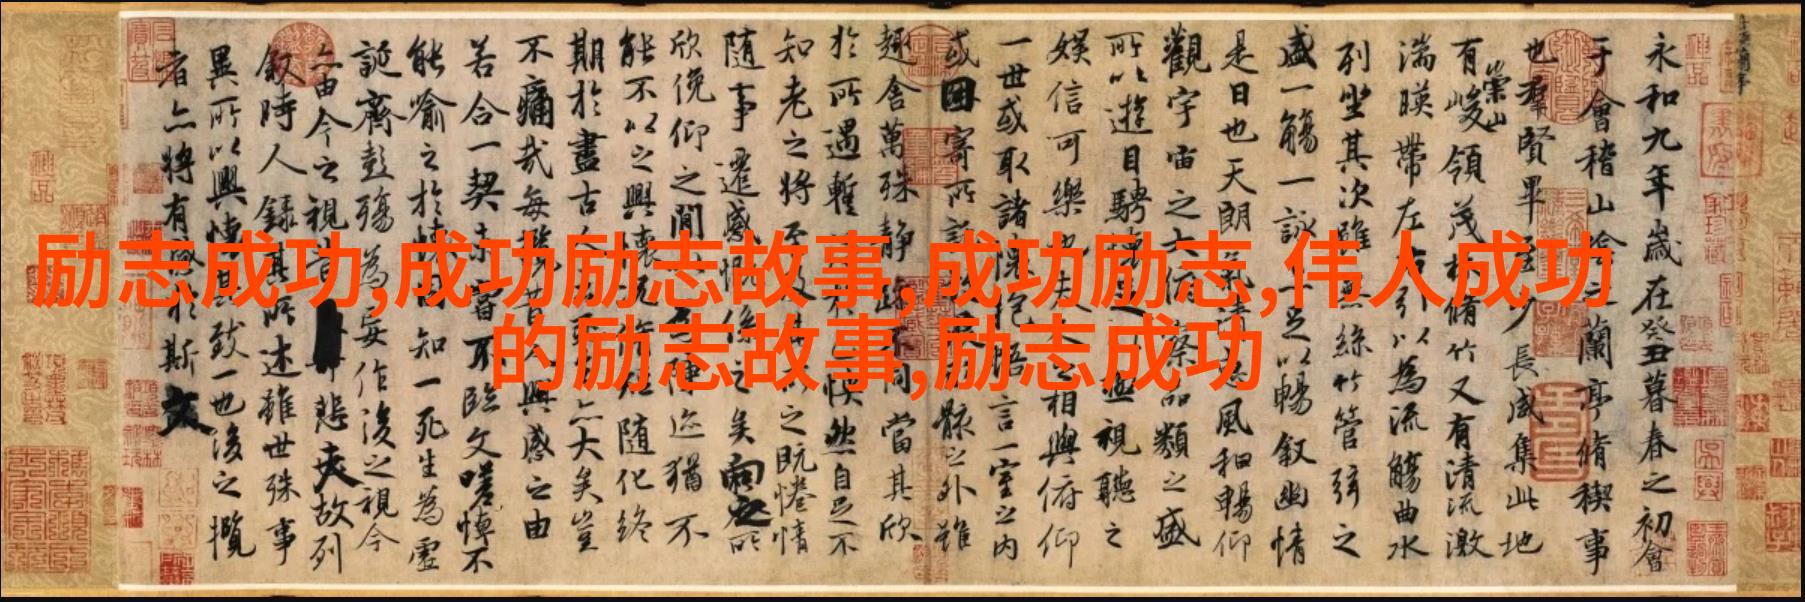 励志成功,成功励志故事,成功励志,伟人成功
的励志故事,励志成功
永和九年歲在癸丑暮春之初會
于會稽山陰之蘭亭脩稧事
也羣賢畢至少長咸集此地
有崇山峻領茂林脩竹又有清流激
湍暎帶左右引以為流觴曲水
列坐其次雖無絲竹管弦之
盛一觴一詠亦足以暢敘幽情
是日也天朗氣清惠風和暢仰
觀宇宙之大俯察品類之盛
所以遊目騁懷足以極視聽之
娛信可樂也夫人之相與俯仰
一世或取諸懷抱悟言一室之內
或因寄所託放浪形骸之外雖
趣舍萬殊靜躁不同當其欣
於所遇蹔得於己怏然自足不
知老之將至及其所之既惓情
隨事遷感慨係之矣向之所
欣俛仰之閒以為陳迹猶不
能不以之興懷況脩短隨化終
期於盡古人云死生亦大矣豈
不痛哉每攬昔人興感之由
若合一契未嘗不臨文嗟悼不
能喻之於懷固知一死生為虛
誕齊彭殤為妄作後之視今
亦由今之視昔悲夫故列
敘時人錄其所述雖世殊事
異所以興懷其致一也後之攬
者亦將有感於斯文